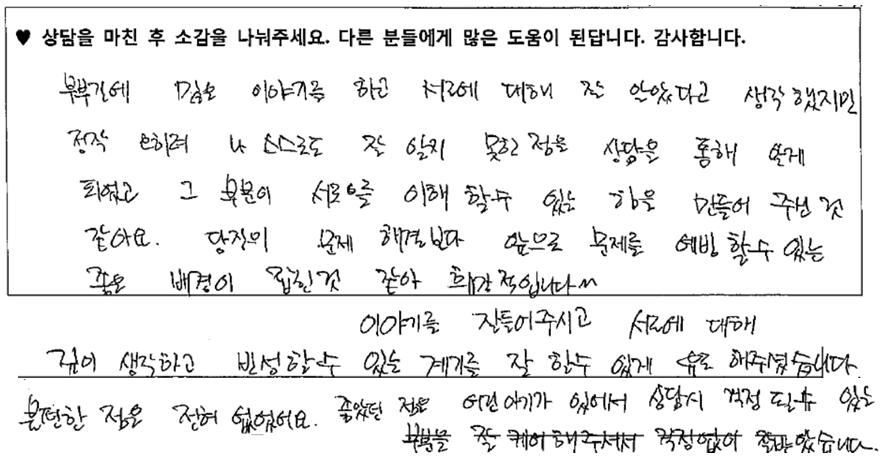 ♥ 상담을 마친 후 소감을 나눠주세요. 다른 분들에게 많은 도움이 된답니다. 감사합니다.
부부간에 많은 이야기를 하고 서로에 대해 잘 안았다고 생각했지만
정작 오히려 나 스스로도 잘 알지 못한 점을 상담을 통해 알게
되었고 그 부분이 서로을 이해 할수 있는 힘을 만들어 주던 것
같아요. 당장의 문제 해결보다 앞으로 문제를 예방 할수 있는
좋은 배경이 잡힌것 같아 희망적입니다^^
이야기를 잘들어주시고 서로에 대해
깊이 생각하고 반성할수 있는 계기를 잘 할수 있게 유도 해주셨습니다.
불편한 점은 전혀 없었어요. 좋았던 점은 어린아기가 있어서 상담시 걱정 될수 있는
부분을 잘 케어해주셔서 걱정없이 잘받았습니다.